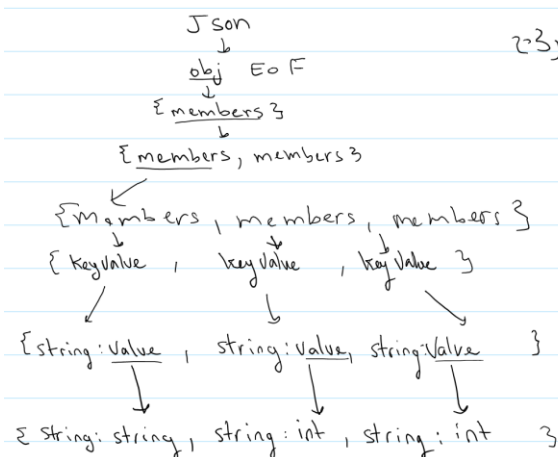 Json
obj EOF
{members}
{members, members}
{members, members, members}
{keyvalue, keyvalue, keyvalue}
{string: value, string: value, string: value}
{string: string, string: int, string: int}